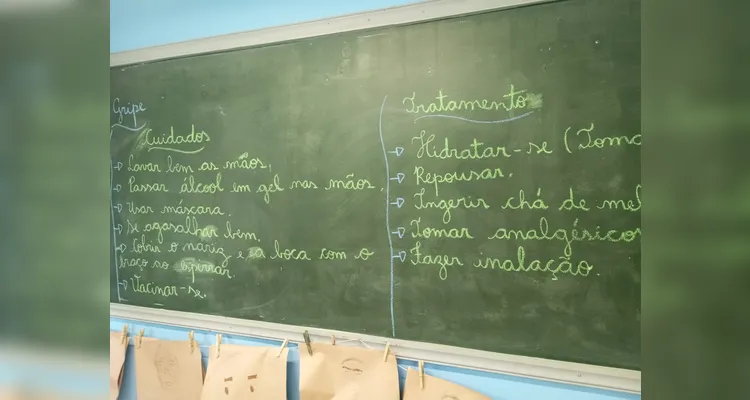 Gripe
Cuidados
→ Lavar bem as mãos.
→ Passar álcool em gel nas mãos.
→ Usar máscara.
→ Se agasalhar bem.
→ Cobrir o nariz e a boca com o
braço ao espirrar.
→ Vacinar-se.
Tratamento
→ Hidratar-se (Toma
→ Repousar.
→ Ingerir chá de mel
→ Tomar analgésicos
→ Fazer inalação.